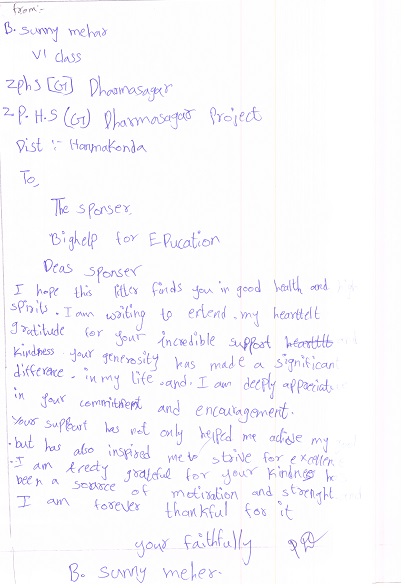 from:-
B. sunny mehar
VI class
ZPHS [G] Dharmasagar
Z.P.H.S (G) Dharmasagar Project
Dist :- Hanmakonda
To,
The sponser,
Bighelp for EDucation
Deas sponser
I hope this litter finds you in good health and
spirits. I am writing to extend my hearttelt
gratitude for your incredible support hearttlt
kindness your generosity has made a significan
difference. in my life and. I am deeply appreciats
in your commitment and encouragement.
your support has not only helped me achive my
but has also inspired me to strive for excellen
I am trecty grateful for your kindness h
been a source of motiration and strenght
I am forever thankful for it
your faithfully
B. sunny meher.